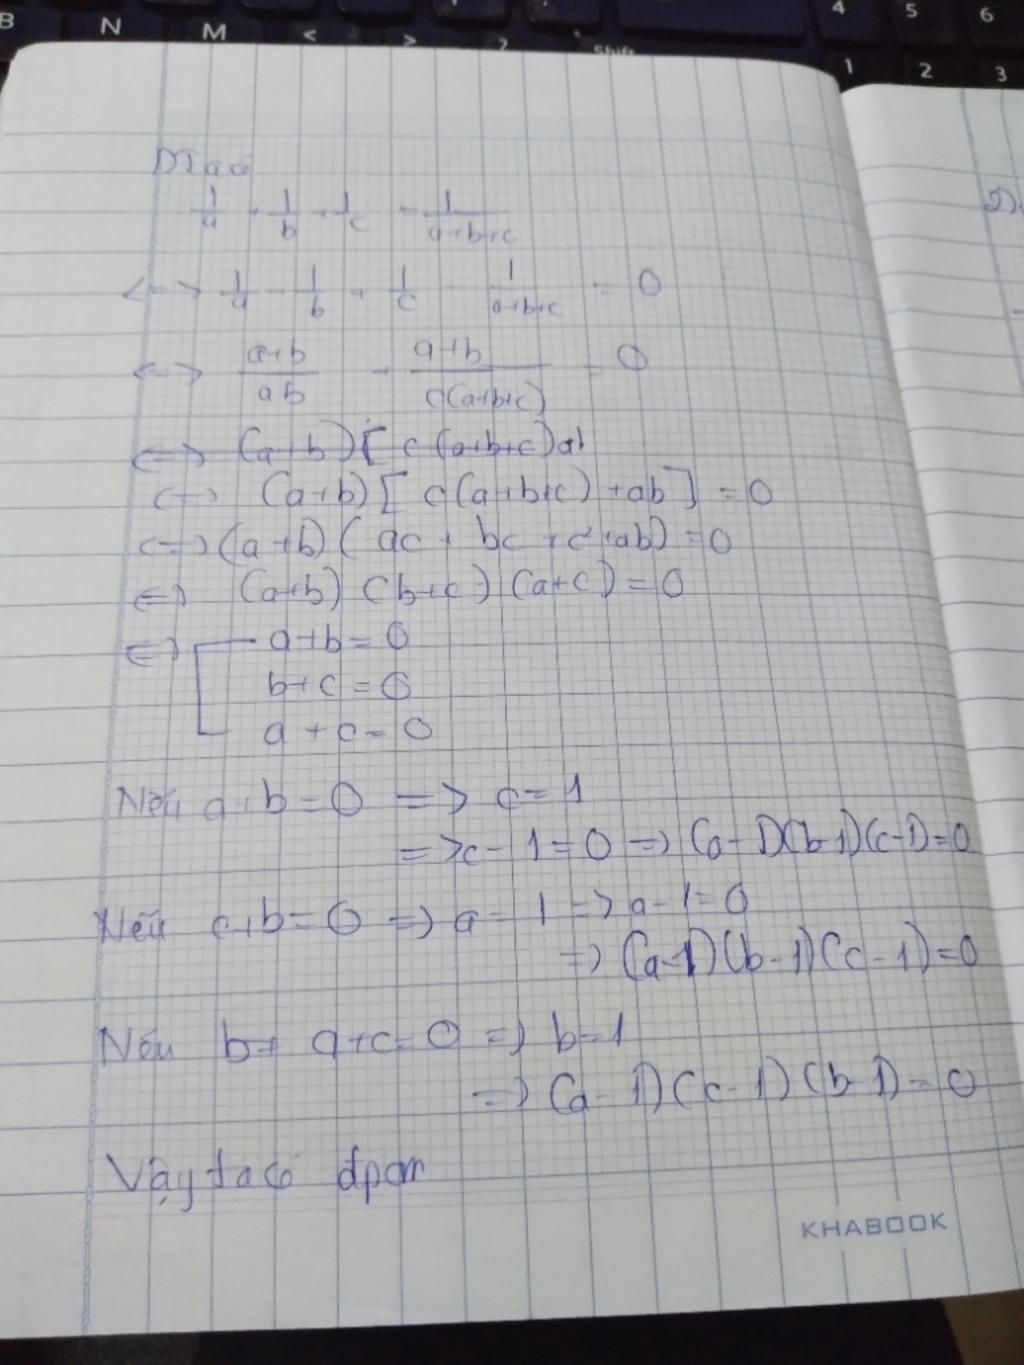 B N M < > ? shift 4 5 6
1 2 3
2)
Ta có
1/a + 1/b + 1/c = 1/(a+b+c)
<=> 1/a + 1/b + 1/c - 1/(a+b+c) = 0
<=> (a+b)/(ab) + (a+b)/(c(a+b+c)) = 0
<=> (a+b)[c(a+b+c)ab
<=> (a+b)[c(a+b+c)+ab] = 0
<=> (a+b)(ac + bc + c²+ab) = 0
<=> (a+b)(b+c)(a+c) = 0
<=> [ a+b = 0
b+c = 0
a+c = 0
Nếu a+b = 0 => c = 1
=> c - 1 = 0 => (a-1)(b-1)(c-1)=0
Nếu c+b = 0 => a = 1 => a-1 = 0
=> (a-1)(b-1)(c-1)=0
Nếu b+ a+c = 0 => b = 1
=> (a-1)(c-1)(b-1) = 0
Vậy ta có đpcm
KHABOOK